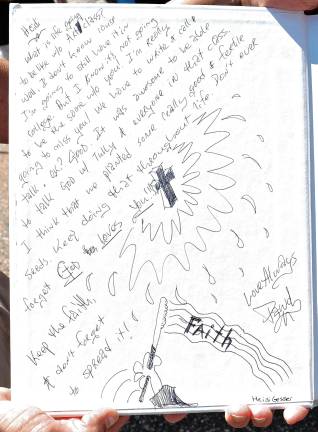 Heidi,
what is life going
to be like w/o
well, I don't know. your
I'm going to still have it in
college. But I know it's not going
to be the same w/o you! I'm really
going to miss you! We have to write & call &
talk. OK? Good. It was awesome to be able
to talk God w/ & everyone in that class.
I think that we planted some really good & fertile
seeds. Keep doing that throughout your life. Don't ever
forget God Loves
You!!
Keep the faith,
& don't forget
to spread it!
Love Always
FAITH
Heidi Gesser